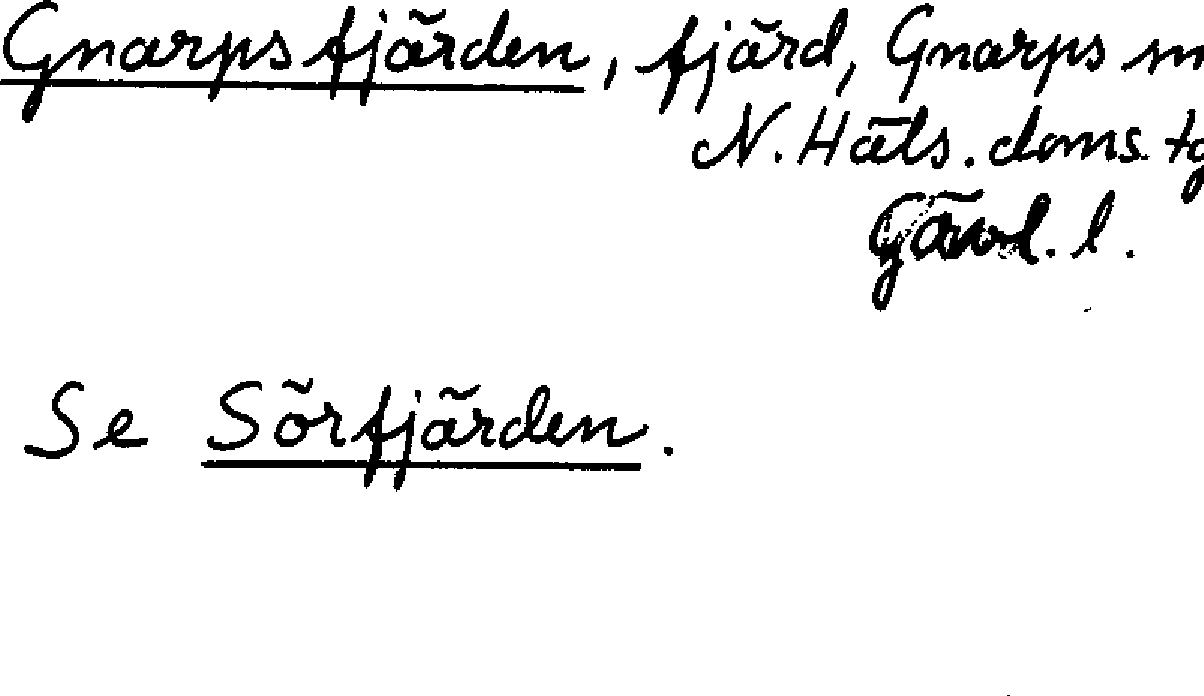 Gnarpsfjärden, fjärd, Gnarps sn
N. Häls. doms. tg
Gävl. l.
Se Sörfjärden.